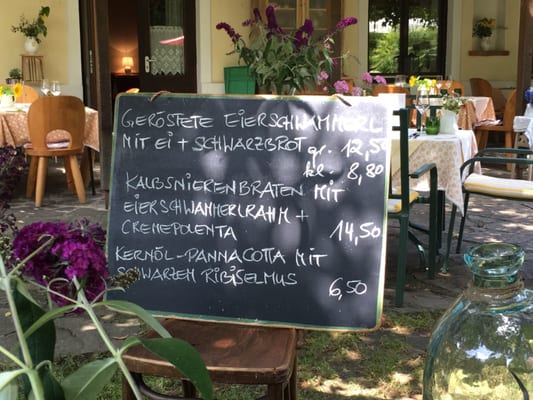 GERÖSTETE EIERSCHWAMMERL
MIT EI + SCHWARZBROT gr. 12,50
kl. 8,80
KALBSNIERENBRATEN MIT
EIERSCHWAMMERLRAHM +
CREMEPOLENTA 14,50
KERNÖL-PANNACOTTA MIT
SCHWARZEM RIBISELMUS 6,50